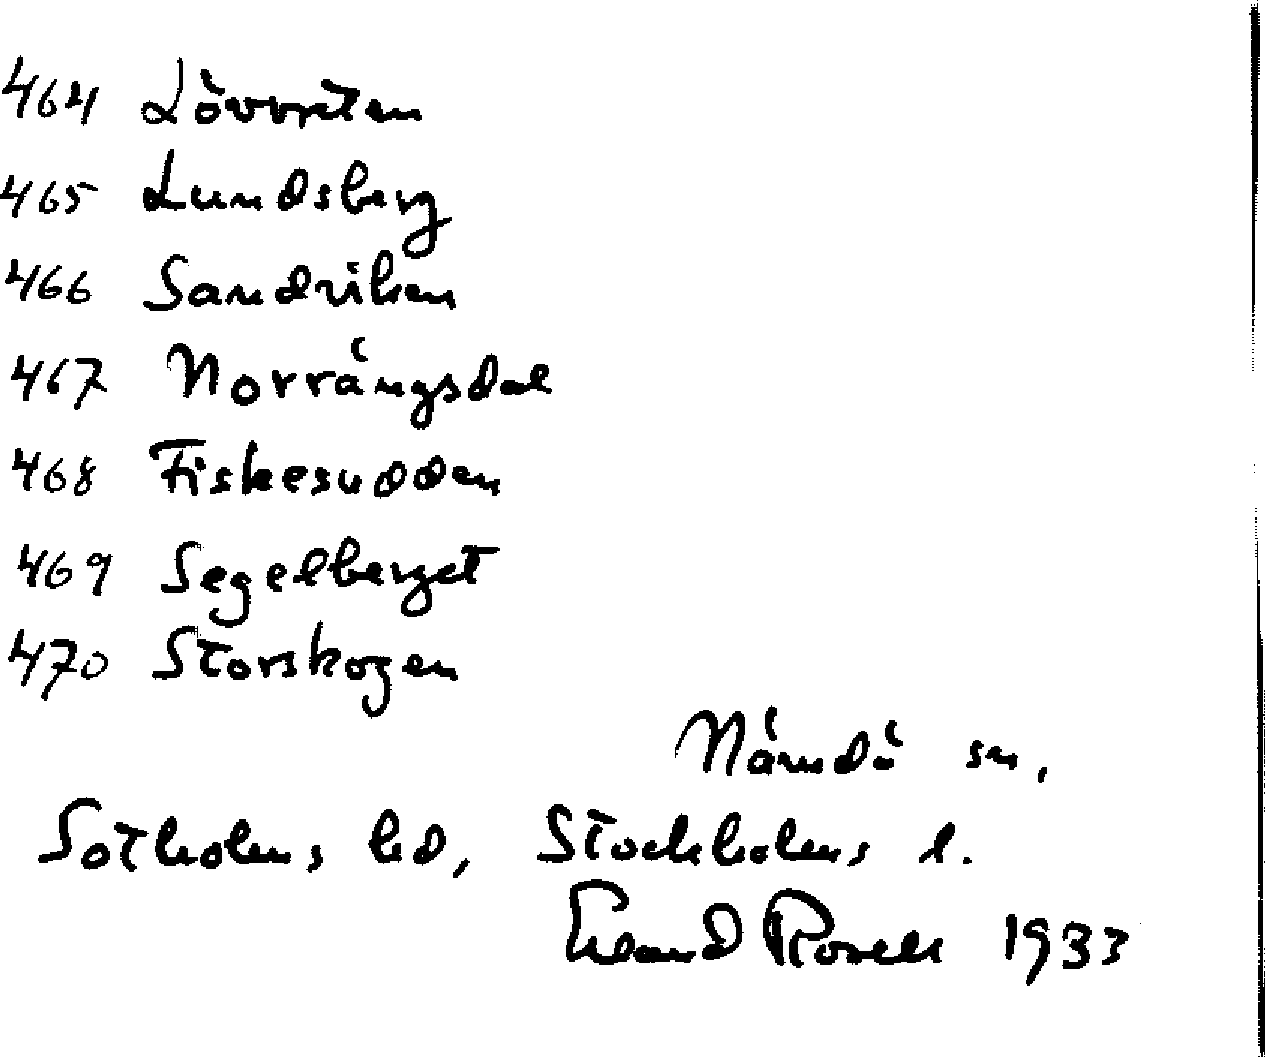 464 Lövvreten
465 Lundsberg
466 Sandviken
467 Norrängsdal
468 Fiskesudden
469 Segelberget
470 Storskogen
Nämdö sn,
Sotholms hd, Stockholms l.
Erland Rosell 1933